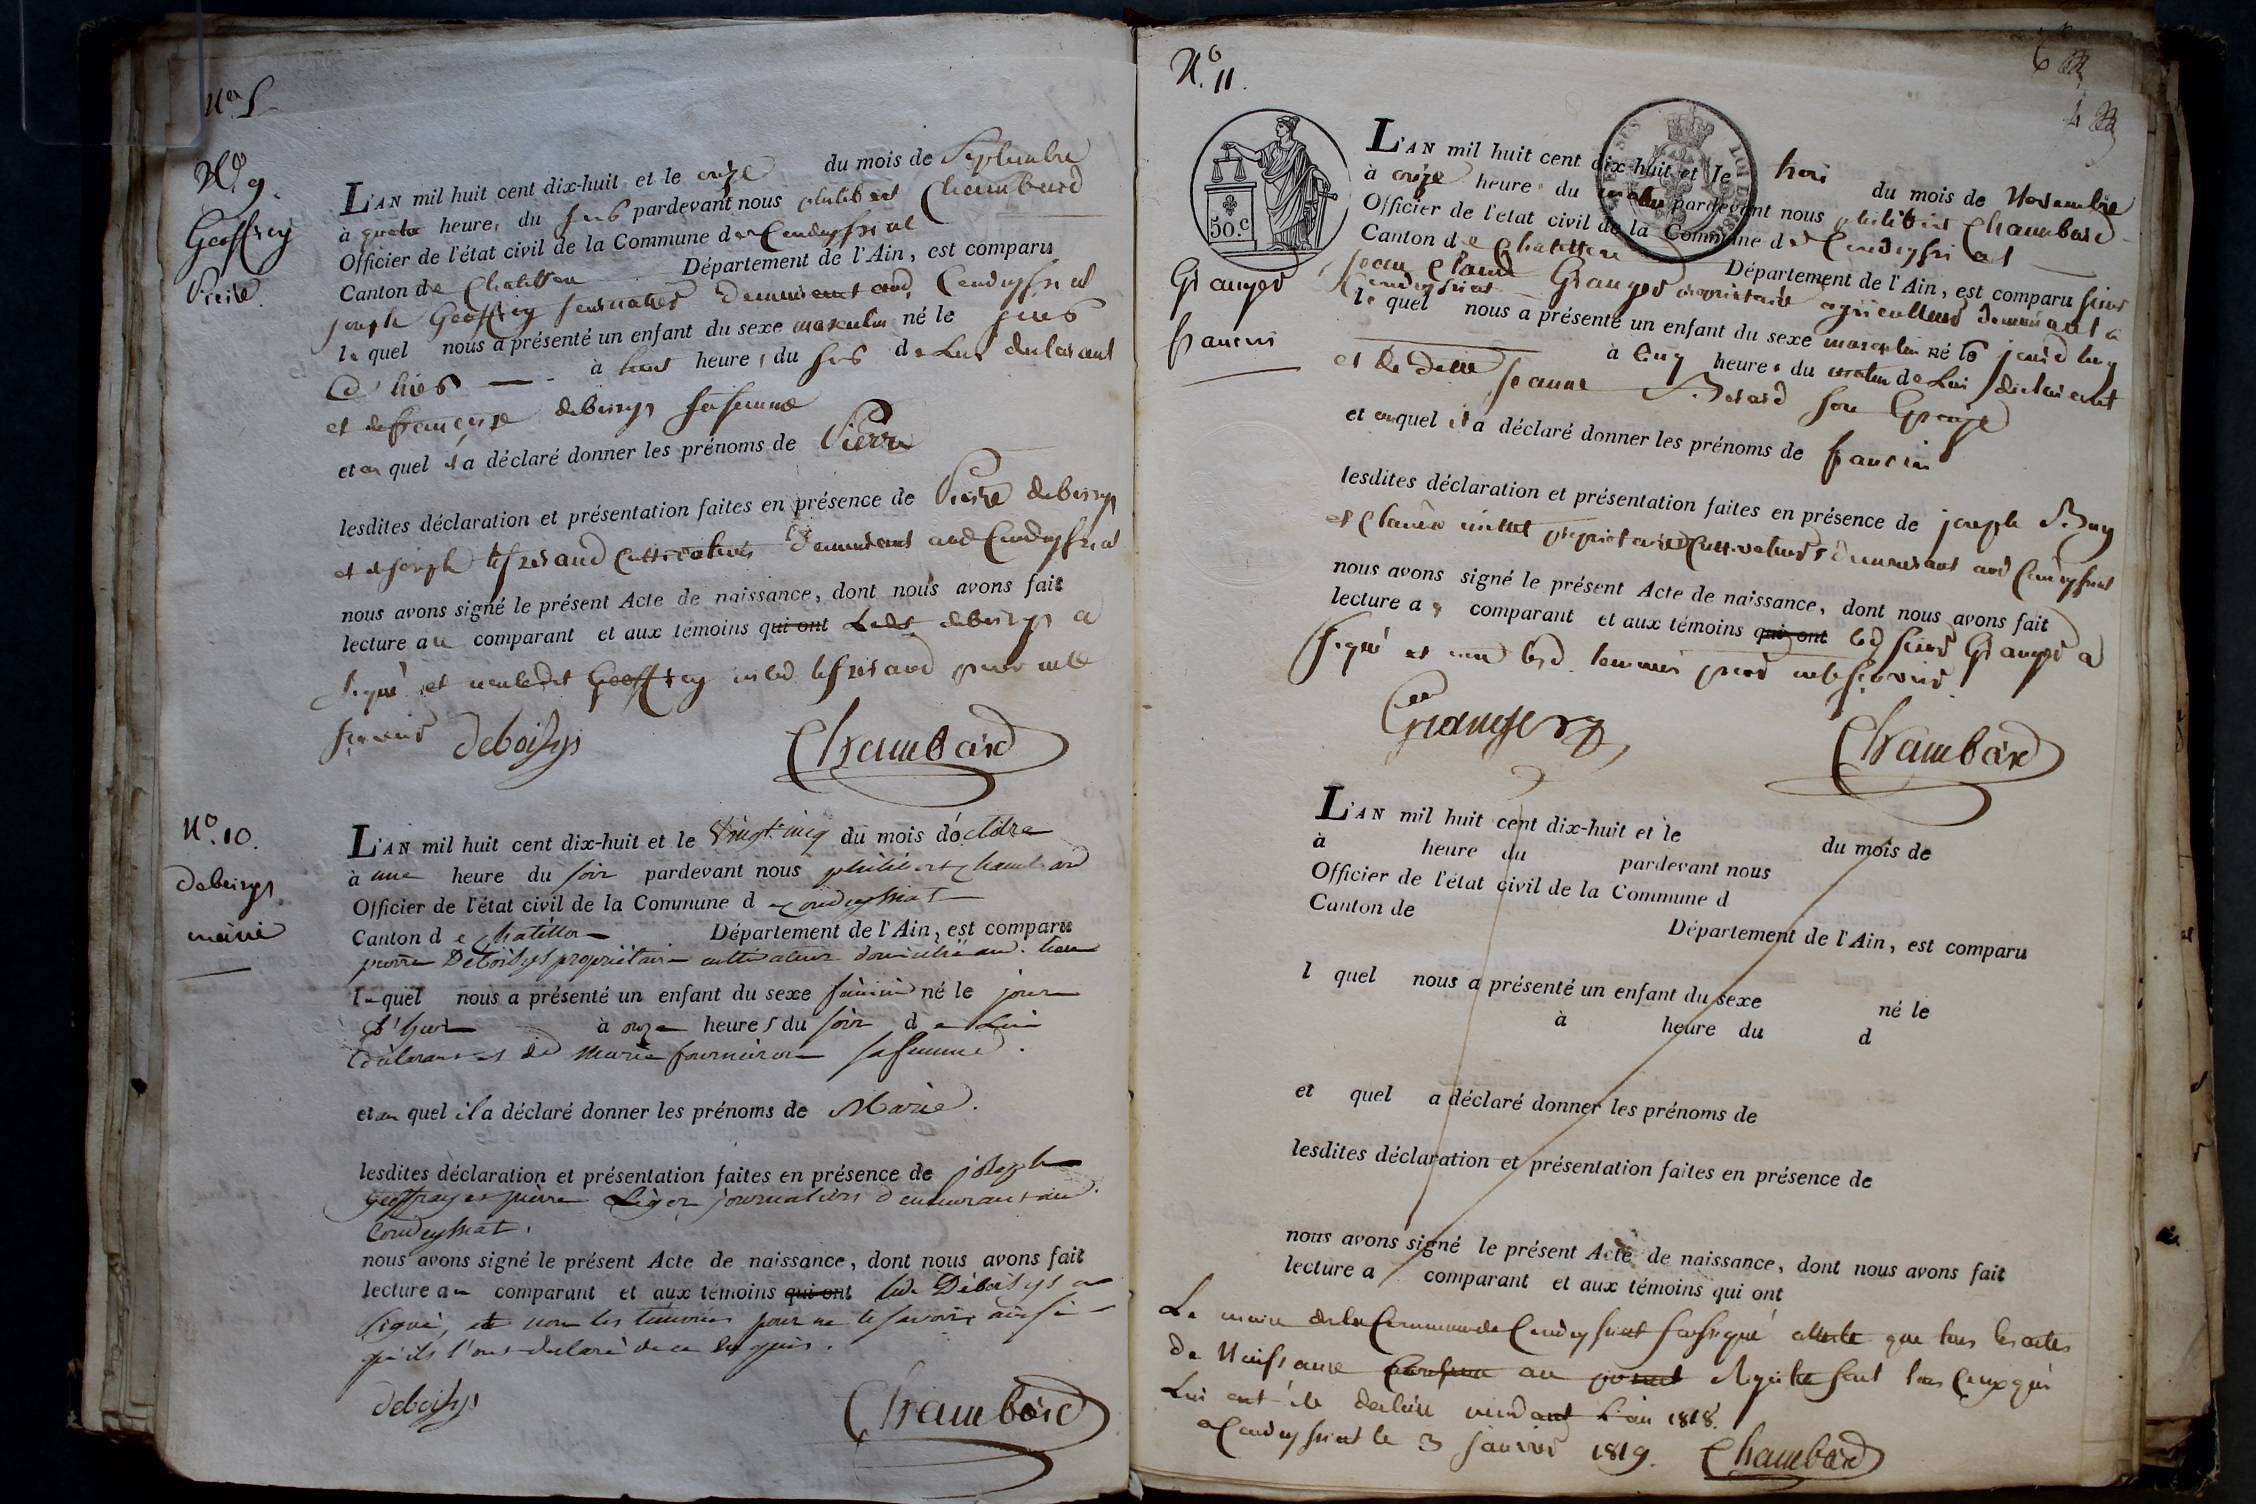 N° 9.
Geoffrey
Pierre.
L'AN mil huit cent dix-huit et le onze du mois de Septembre
à quatre heures du soir pardevant nous philibert Chambard
Officier de l'état civil de la Commune de Condeyssiat
Canton de Chatillon Département de l'Ain, est comparu
joseph Geoffrey journalier demeurant aud. Condeyssiat
lequel nous a présenté un enfant du sexe masculin né le jour
d'hier à huit heures du soir de Lui declarant
et de françoise deboisys sa femme
et au quel il a déclaré donner les prénoms de Pierre
lesdites déclaration et présentation faites en présence de Pierre deboisys
et de joseph demeurant aud Condeyssiat
nous avons signé le présent Acte de naissance, dont nous avons fait
lecture au comparant et aux témoins qui ont Ledt deboisys a
signé et non ledit Geoffrey ni led pour ne le
scavoir deboisys Chambard
N° 10.
deboisys
marie
L'AN mil huit cent dix-huit et le Vingt cinq du mois d'octobre
à une heure du soir pardevant nous philibert chambard
Officier de l'état civil de la Commune de Condeyssiat
Canton de chatillon Département de l'Ain, est comparu
pierre Deboisys propriétaire cultivateur domicilié aud. lieu
lequel nous a présenté un enfant du sexe féminin né le jour
d'hier à onze heures du soir de Lui
déclarant et de Marie fourneiron sa femme.
et au quel il a déclaré donner les prénoms de Marie.
lesdites déclaration et présentation faites en présence de joseph
geoffray et pierre Léger journaliers demeurant aud.
Condeyssiat.
nous avons signé le présent Acte de naissance, dont nous avons fait
lecture au comparant et aux témoins qui ont led. Deboisys a
signé, et non les témoins pour ne le savoir, ainsi
qu'ils l'ont déclaré de ce enquis.
deboisys Chambard
N° 11.
50.c
Granger
francois
L'AN mil huit cent dix-huit et le trois du mois de Novembre
à onze heures du matin pardevant nous philibert Chambard
Officier de l'état civil de la Commune de Condeyssiat
Canton de Chatillon Département de l'Ain, est comparu sieur
jean Claude Granger propriétaire agriculteur demeurant a
Condeyssiat
le quel nous a présenté un enfant du sexe masculin né le jourd'huy
à cinq heures du matin de Lui declarant
et de delle jeanne Berard son Epouse
et auquel il a déclaré donner les prénoms de francois
lesdites déclaration et présentation faites en présence de joseph Buy
et Claude millet propriétaires Cultivateurs demeurant aud Condeyssiat
nous avons signé le présent Acte de naissance, dont nous avons fait
lecture au comparant et aux témoins qui ont led sieur Granger a
signé et non lesd. temoins pour ne le scavoir.
Granger Chambard
L'AN mil huit cent dix-huit et le du mois de
à heure du pardevant nous
Officier de l'état civil de la Commune d
Canton de Département de l'Ain, est comparu
l quel nous a présenté un enfant du sexe né le
à heure du d
et quel a déclaré donner les prénoms de
lesdites déclaration et présentation faites en présence de
nous avons signé le présent Acte de naissance, dont nous avons fait
lecture a comparant et aux témoins qui ont
Le maire de la Commune de Condeyssiat soussigné atteste que tous les actes
de Naissance au présent Registre sont tous Ceux qui
Lui ont été declaré pendant L'an 1818.
a Condeyssiat le 3 janvier 1819. Chambard